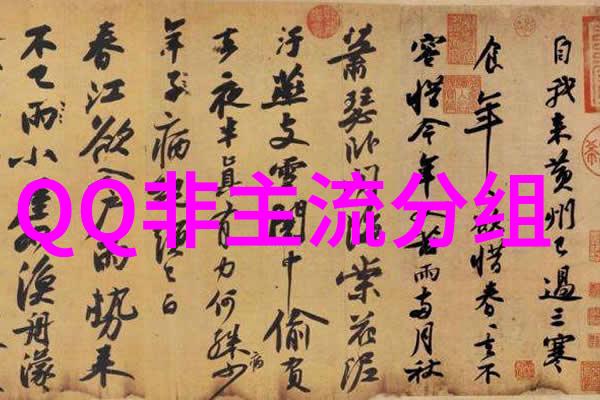 QQ非主流分组
自我来黄州已過三寒
食年々欲惜春々去不
容惜今年又苦雨兩月秋
蕭瑟卧聞海棠花泥
汙燕支雪闇中偷負
去夜半真有力何殊少
病
年子病起頭已白
春江欲入户雨勢来
不已雨小屋如漁舟濛